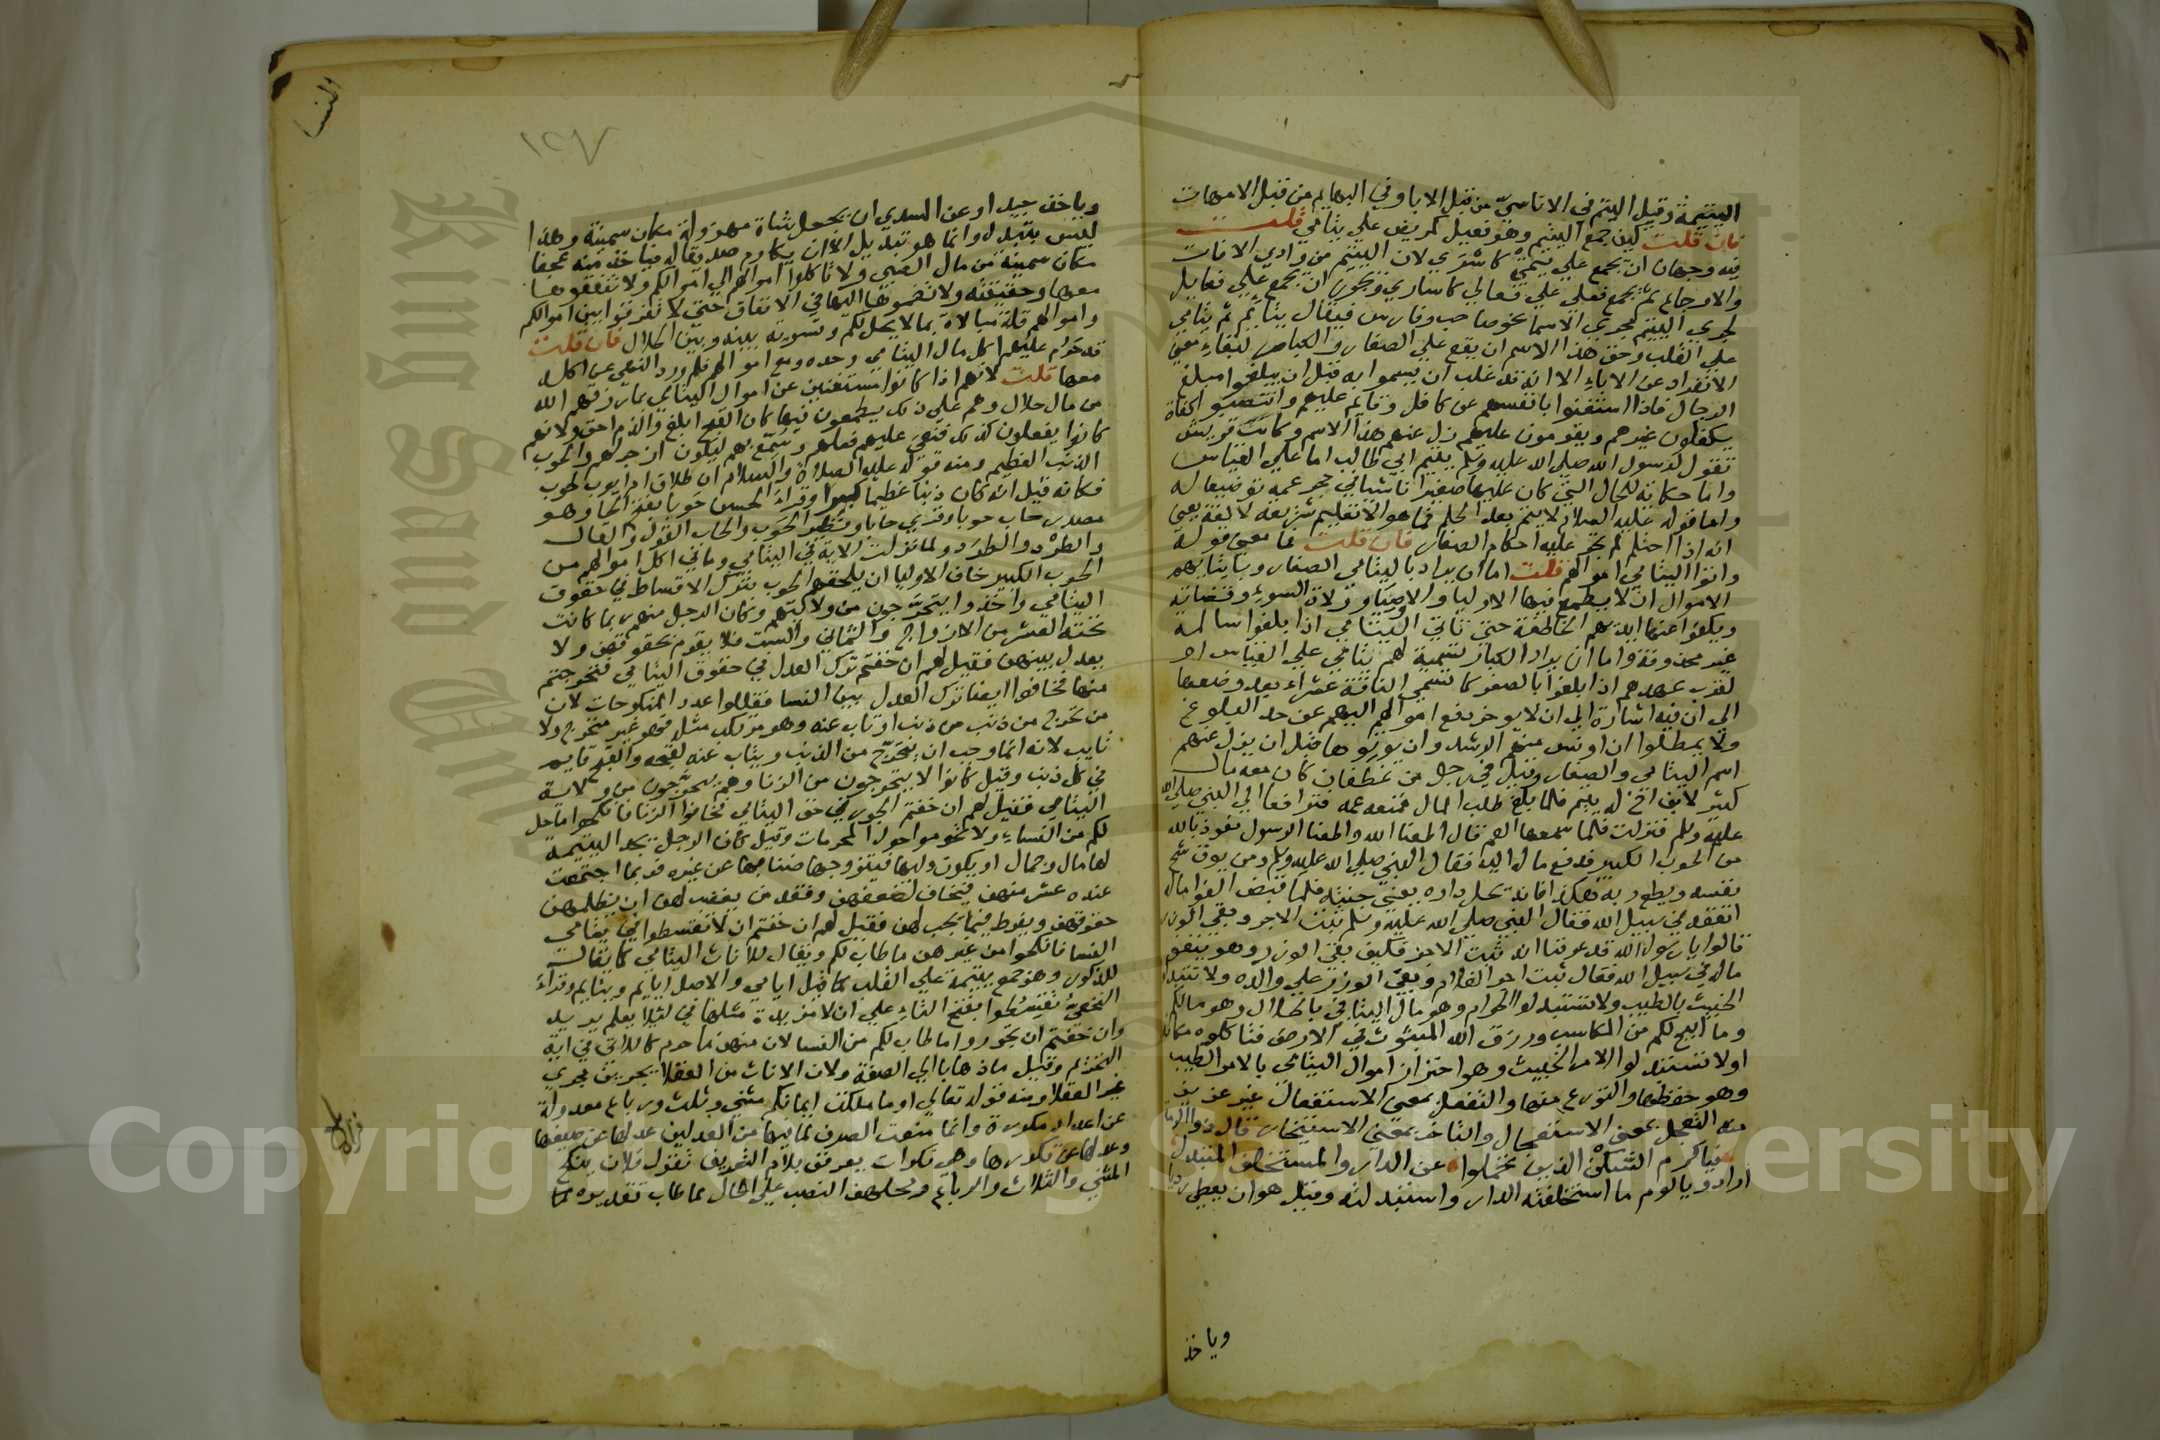 اليتيمة وقيل اليتم في الاناسيّ من قبل الابا وفي البهايم من قبل الامهات
فان قلت كيف جمع اليتيم وهو فعيل كمريض علي يتامي قلت
فيه وجهان ان يجمع علي يتمي كاسري لان اليتم من وادي الافات
والاوجاع ثم يجمع فعلي علي فعالي كاساري ويجوز ان يجمع علي فعايل
لجري اليتيم مجري الاسما نحو صاحب وفارس فيقال يتايم ثم يتامي
علي القلب وحق هذا الاسم ان يقع علي الصغار والكبار لبقاء معني
الانفراد عن الاباء الا انه قد غلب ان يسموا به قبل ان يبلغوا مبلغ
الرجال فاذا استغنوا بانفسهم عن كافل وقايم عليهم وانتصبوا كفاة
يكفلون غيرهم ويقومون عليهم زال عنهم هذا الاسم وكانت قريش
تقول لرسول الله صلي الله عليه وسلم يتيم ابي طالب اما علي القياس
واما حكاية للحال التي كان عليها صغيرا ناشيا في حجر عمه توضيعا له
واما قوله عليه السلام لا يتم بعد الحلم فما هو الا تعليم شريعة لا لغة يعني
انه اذا احتلم لم تجر عليه احكام الصغار فان قلت فما معني قوله
واتوا اليتامي اموالهم قلت اما ان يراد باليتامي الصغار وباتيانهم
الاموال ان لا يطمع فيها الاوليا والاوصيا وولاة السوء وقضاته
ويكفوا عنها ايديهم الخاطفة حتي تاتي اليتامي اذا بلغوا سالمة
غير محذوفة واما ان يراد الكبار تسمية لهم يتامي علي القياس او
لقرب عهدهم اذا بلغوا بالصغر كما تسمي الناقة عشراء بعد وضعها
الي ان فيه اشارة الي ان لا يوخر دفع اموالهم اليهم عن حد البلوغ
ولا يمطلوا ان اونس منهم الرشد وان يوتوها قبل ان يزل عنهم
اسم اليتامي والصغار وقيل في رجل من غطفان كان معه مال
كثير لابن اخ له يتيم فلما بلغ طلب المال فمنعه عمه فترافعا الي النبي صلي الله
عليه وسلم فنزلت فلما سمعها العم قال اطعنا الله واطعنا الرسول نعوذ بالله
من الحوب الكبير فدفع ماله اليه فقال النبي صلي الله عليه وسلم ومن يوق شح
نفسه ويطع ربه هكذا فانه يحل داره يعني جنته فلما قبض الفتي ماله
انفقه في سبيل الله فقال النبي صلي الله عليه وسلم ثبت الاجر وبقي الوزر
قالوا يا رسول الله قد عرفنا انه ثبت الاجر فكيف بقي الوزر وهو ينفق
ماله في سبيل الله فقال ثبت اجر الغلام وبقي الوزر علي والده ولا تتبدلوا
الخبيث بالطيب ولا تستبدلوا الحرام وهو مال اليتامي بالحلال وهو مالكم
وما ابيح لكم من المكاسب ورزق الله المبثوث في الارض فتاكلوه مكانه
اولا تستبدلوا الامر الخبيث وهو اختزان اموال اليتامي بالامر الطيب
وهو حفظها والتورع منها والتفعل بمعني الاستفعال غير عزيز
منه التعجل بمعني الاستعجال والتاخر بمعني الاستيخار قال ذو الرمة
فياكرم السكن الذين تحملوا عن الدار والمستخلف المتبدل
اراد ويالوم ما استخلفته الدار واستبدلته وقيل هو ان يعطي رديا
وياخذ
النسا
١٢٧
وياخذ جيدا وعن السدي ان يجعل شاة مهزولة مكان سمينة وهذا
ليس بتبدل وانما هو تبديل الا ان يكارم صديقا له فياخذ منه عجفا
مكان سمينة من مال الصبي ولا تاكلوا اموالهم الي اموالكم ولا تنفقوها
معها وحقيقته ولا تضموها اليها في الانفاق حتي لا تفرقوا بين اموالكم
واموالهم قلة مبالاة بما لا يحل لكم وتسوية بينه وبين الحلال فان قلت
قد حرم عليهم اكل مال اليتامي وحده ومع اموالهم فلم ورد النهي عن اكله
معها قلت لانهم اذا كانوا مستغنين عن اموال اليتامي بما رزقهم الله
من مال حلال وهم علي ذلك يطمعون فيها كان القبح ابلغ والذم احق ولانهم
كانوا يفعلون كذلك فنعي عليهم فعلهم وسمع بهم ليكون ازجر لهم والحوب
الذنب العظيم ومنه قوله عليه الصلاة والسلام ان طلاق ام ايوب لحوب
فكانه قيل انه كان ذنبا عظيما كبيرا وقراء الحسن حوبا بفتح الحا وهو
مصدر حاب حوبا وقري حابا ونظير الحوب والحاب القول والقال
والطرد والطرد ولما نزلت الاية في اليتامي وما في اكل اموالهم من
الحوب الكبير خاف الاوليا ان يلحقهم الحوب بترك الاقساط في حقوق
اليتامي واخذوا يتحرجون من ولايتهم وكان الرجل منهم ربما كانت
تحته العشر من الازواج والثماني والست فلا يقوم بحقوقهن ولا
يعدل بينهن فقيل لهم ان خفتم ترك العدل في حقوق اليتامي فتحرجتم
منها فخافوا ايضا ترك العدل بين النسا فقللوا عدد المنكوحات لان
من تحرج من ذنب او تاب عنه وهو مرتكب مثله فهو غير متحرج ولا
تايب لانه انما وجب ان يتحرج من الذنب ويتاب عنه لقبحه والقبح قايم
في كل ذنب وقيل كانوا لا يتحرجون من الزنا وهم يتحرجون من ولاية
اليتامي فقيل لهم ان خفتم الجور في حق اليتامي فخافوا الزنا فانكحوا ما حل
لكم من النساء ولا تحوموا حول المحرمات وقيل كان الرجل يجد اليتيمة
لها مال وجمال او يكون وليها فيتزوجها ضنا بها عن غيره فربما اجتمعت
عنده عشر منهن فيخاف لضعفهن وفقد من يغضب لهن ان يظلمهن
حقوقهن ويفرط فيما يجب لهن فقيل لهم ان خفتم ان لا تقسطوا في يتامي
النسا فانكحوا من غيرهن ما طاب لكم ويقال للاناث اليتامي كما يقال
للذكور وهو جمع يتيمة علي القلب كما قيل ايامي والاصل ايايم ويتايم وقراء
النخعي تقسطوا بفتح التاء علي ان لا مزيدة مثلها في ليلا يعلم يريد
وان خفتم ان تجوروا ما طاب لكم من النسا لان منهن ما حرم كاللاتي في اية
التحريم وقيل ما ذهابا الي الصفة ولان الاناث من العقلا يجرين مجري
غير العقلا ومنه قوله تعالي او ما ملكت ايمانكم مثني وثلث ورباع معدولة
عن اعداد مكررة وانما منعت الصرف لما فيها من العدلين عدلها عن صيغها
وعدلها عن تكررها وهي نكرات يعرفن بلام التعريف تقول فلان ينكح
المثني والثلاث والرباع ومحلهن النصب علي الحال مما طاب تقديره فا